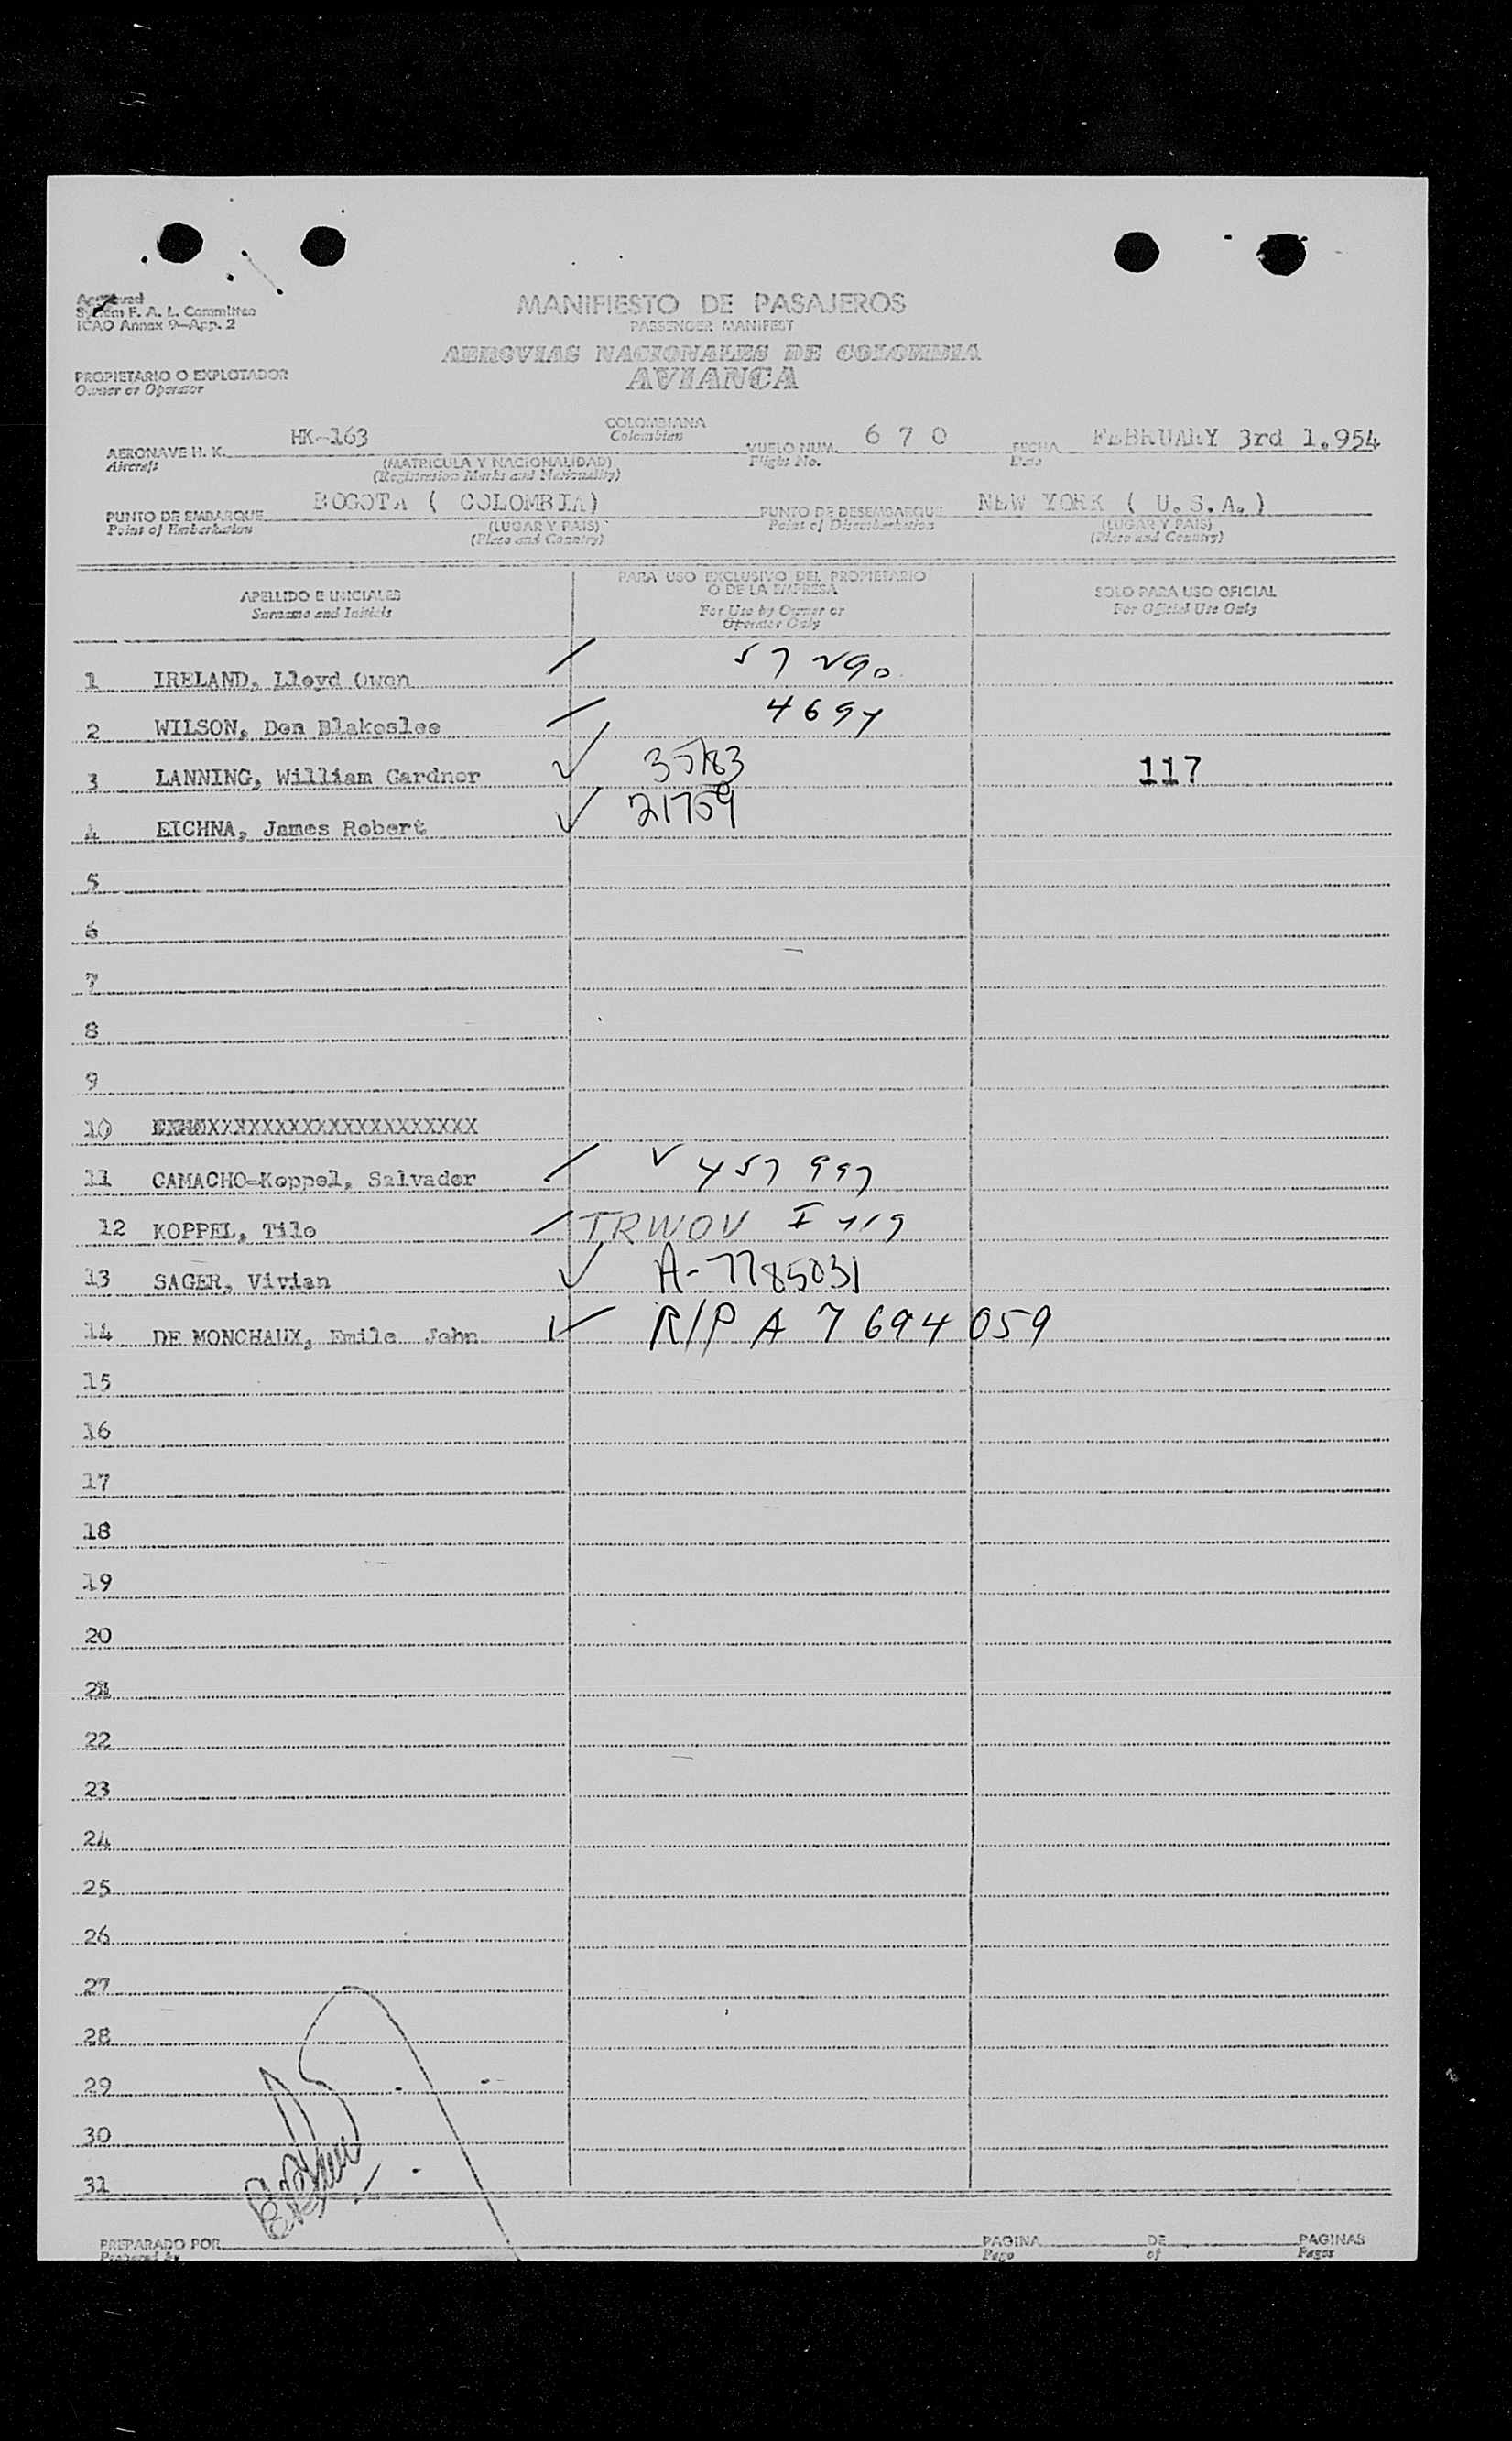 Approved
System F. A. L. Committee
ICAO Annex 9—App. 2
MANIFIESTO DE PASAJEROS
PASSENGER MANIFEST
AEROVIAS NACIONALES DE COLOMBIA
AVIANCA
PROPIETARIO O EXPLOTADOR
Owner or Operator
AERONAVE H. K. HK-163 COLOMBIANA VUELO NUM. 6 7 0 FECHA FEBRUARY 3rd 1.954
Aircraft Colombian Flight No. Date
(MATRICULA Y NACIONALIDAD)
(Registration Marks and Nationality)
PUNTO DE EMBARQUE BOGOTA ( COLOMBIA) PUNTO DE DESEMBARQUE NEW YORK ( U.S.A.)
Point of Embarkation (LUGAR Y PAIS) Point of Disembarkation (LUGAR Y PAIS)
(Place and Country) (Place and Country)
APELLIDO E INICIALES PARA USO EXCLUSIVO DEL PROPIETARIO O DE LA EMPRESA SOLO PARA USO OFICIAL
Surname and Initials For Use by Owner or Operator Only For Official Use Only
1 IRELAND, Lloyd Owen
2 WILSON, Don Blakeslee
3 LANNING, William Gardner 117
4 EICHNA, James Robert 21759
5
6
7
8
9
10 XXXXXXXXXXXXXXXXXXXX
11 CAMACHO-Koppel, Salvador 457 997
12 KOPPEL, Tilo
13 SAGER, Vivian A-7785031
14 DE MONCHAUX, Emile John R/P A 7 694 059
15
16
17
18
19
20
21
22
23
24
25
26
27
28
29
30
31
PREPARADO POR PAGINA DE PAGINAS
Prepared by Page of Pages